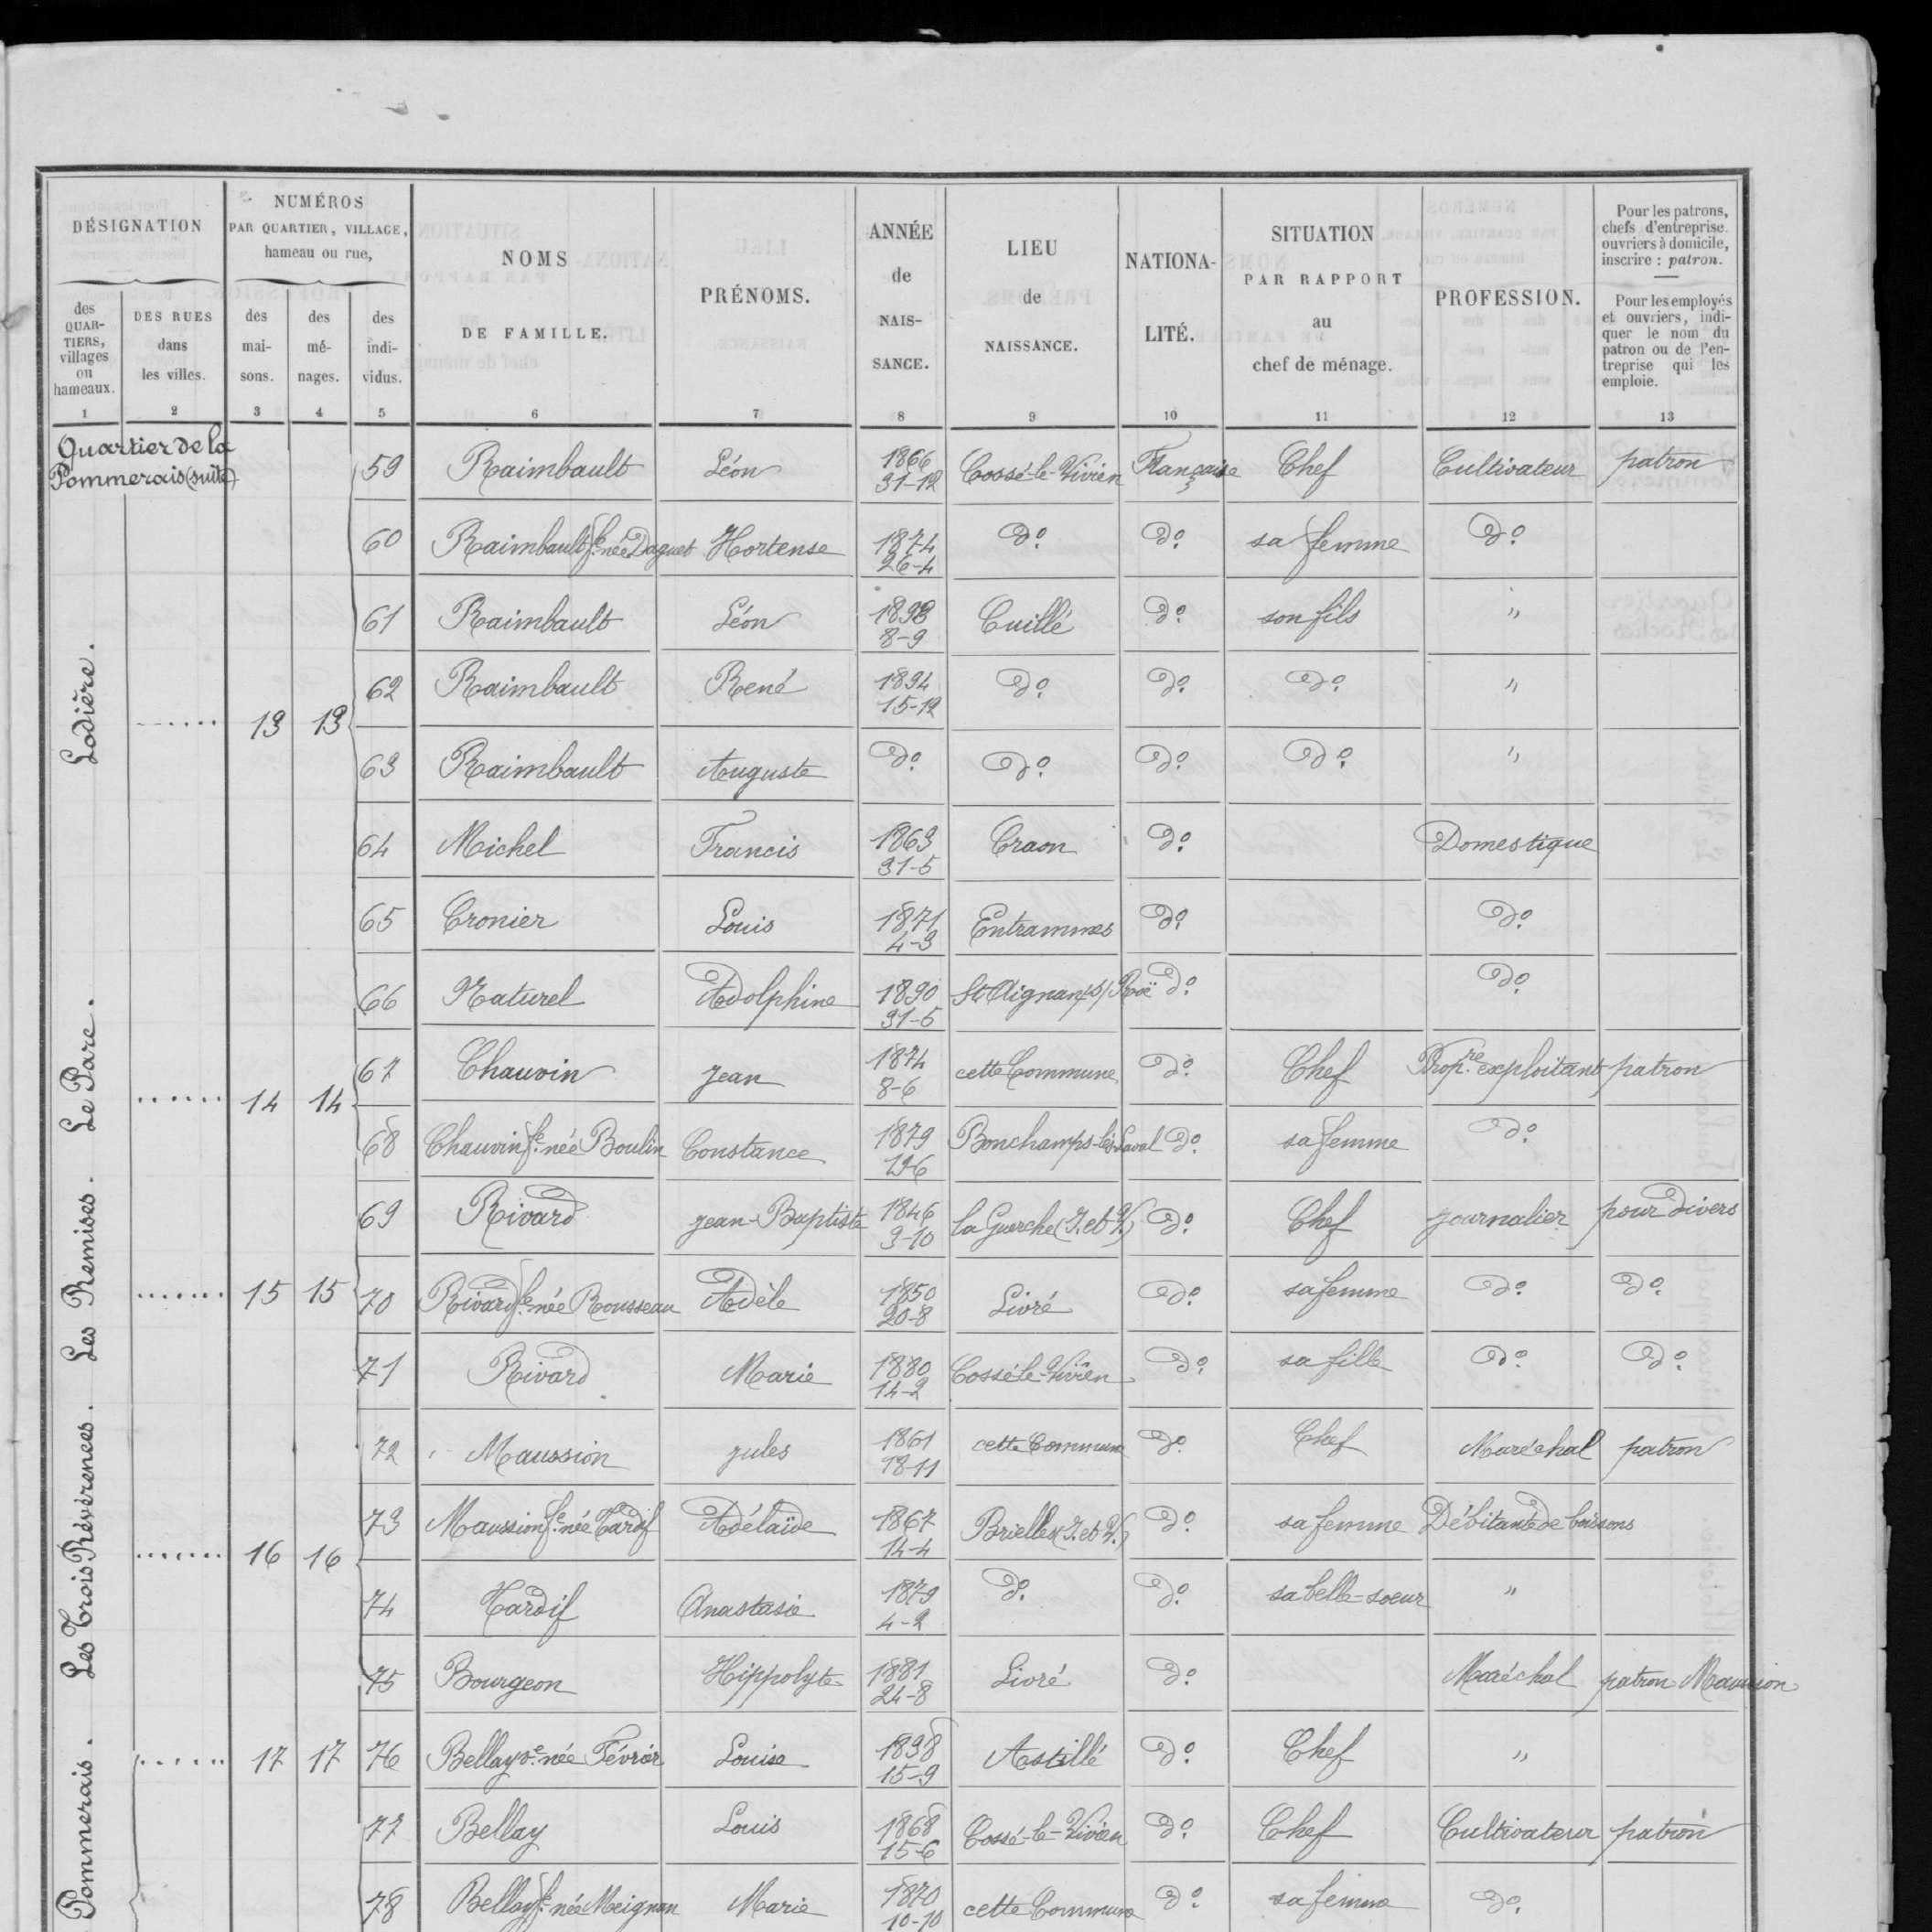 DÉSIGNATION
NUMÉROS
PAR QUARTIER, VILLAGE,
hameau ou rue,
des
QUAR-
TIERS,
villages
ou
hameaux.
DES RUES
dans
les villes.
des
mai-
sons.
des
mé-
nages.
des
indi-
vidus.
NOMS
DE FAMILLE.
PRÉNOMS.
ANNÉE
de
NAIS-
SANCE.
LIEU
de
NAISSANCE.
NATIONA-
LITÉ.
SITUATION
PAR RAPPORT
au
chef de ménage.
PROFESSION.
Pour les patrons,
chefs d'entreprise.
ouvriers à domicile,
inscrire : patron.
Pour les employés
et ouvriers, indi-
quer le nom du
patron ou de l'en-
treprise qui les
emploie.
1 2 3 4 5 6 7 8 9 10 11 12 13
Quartier de la
Pommerais (suite)
59 Raimbault Léon 1866 Cossé-le-Vivien Française Chef Cultivateur patron
31-12
60 Raimbault fe née Daguet Hortense 1874 do do sa femme do
26-4
61 Raimbault Léon 1893 Cuillé do son fils "
8-9
Lodière.
62 Raimbault René 1894 do do do "
15-12
13 13
63 Raimbault Auguste do do do do "
64 Michel Francis 1863 Craon do Domestique
31-5
65 Cronier Louis 1871 Entrammes do do
4-3
66 Naturel Adolphine 1890 St Aignan s/ Roë do do
31-5
Le Parc.
67 Chauvin Jean 1874 cette Commune do Chef Propre exploitant patron
8-6
14 14
68 Chauvin fe née Boulin Constance 1879 Bonchamps-lès-Laval do sa femme do
19-6
Les Remises.
69 Rivard Jean-Baptiste 1846 la Guerche (I. et V.) do Chef journalier pour divers
3-10
15 15 70 Rivard fe née Rousseau Adèle 1850 Livré do sa femme do do
20-8
71 Rivard Marie 1880 Cossé-le-Vivien do sa fille do do
14-2
Les Trois Révérences.
72 Maussion Jules 1861 cette Commune do Chef Maréchal patron
18-11
73 Maussion fe née Tardif Adélaïde 1867 Brielles (I. et V.) do sa femme Débitante de boissons
14-4
16 16
74 Tardif Anastasie 1879 do do sa belle-soeur "
4-2
75 Bourgeon Hippolyte 1881 Livré do Maréchal patron Maussion
24-8
Pommerais.
17 17 76 Bellay ve née Février Louise 1838 Astillé do Chef "
15-9
77 Bellay Louis 1868 Cossé-le-Vivien do Chef Cultivateur patron
15-6
78 Bellay fe née Meignan Marie 1870 cette Commune do sa femme do
10-10